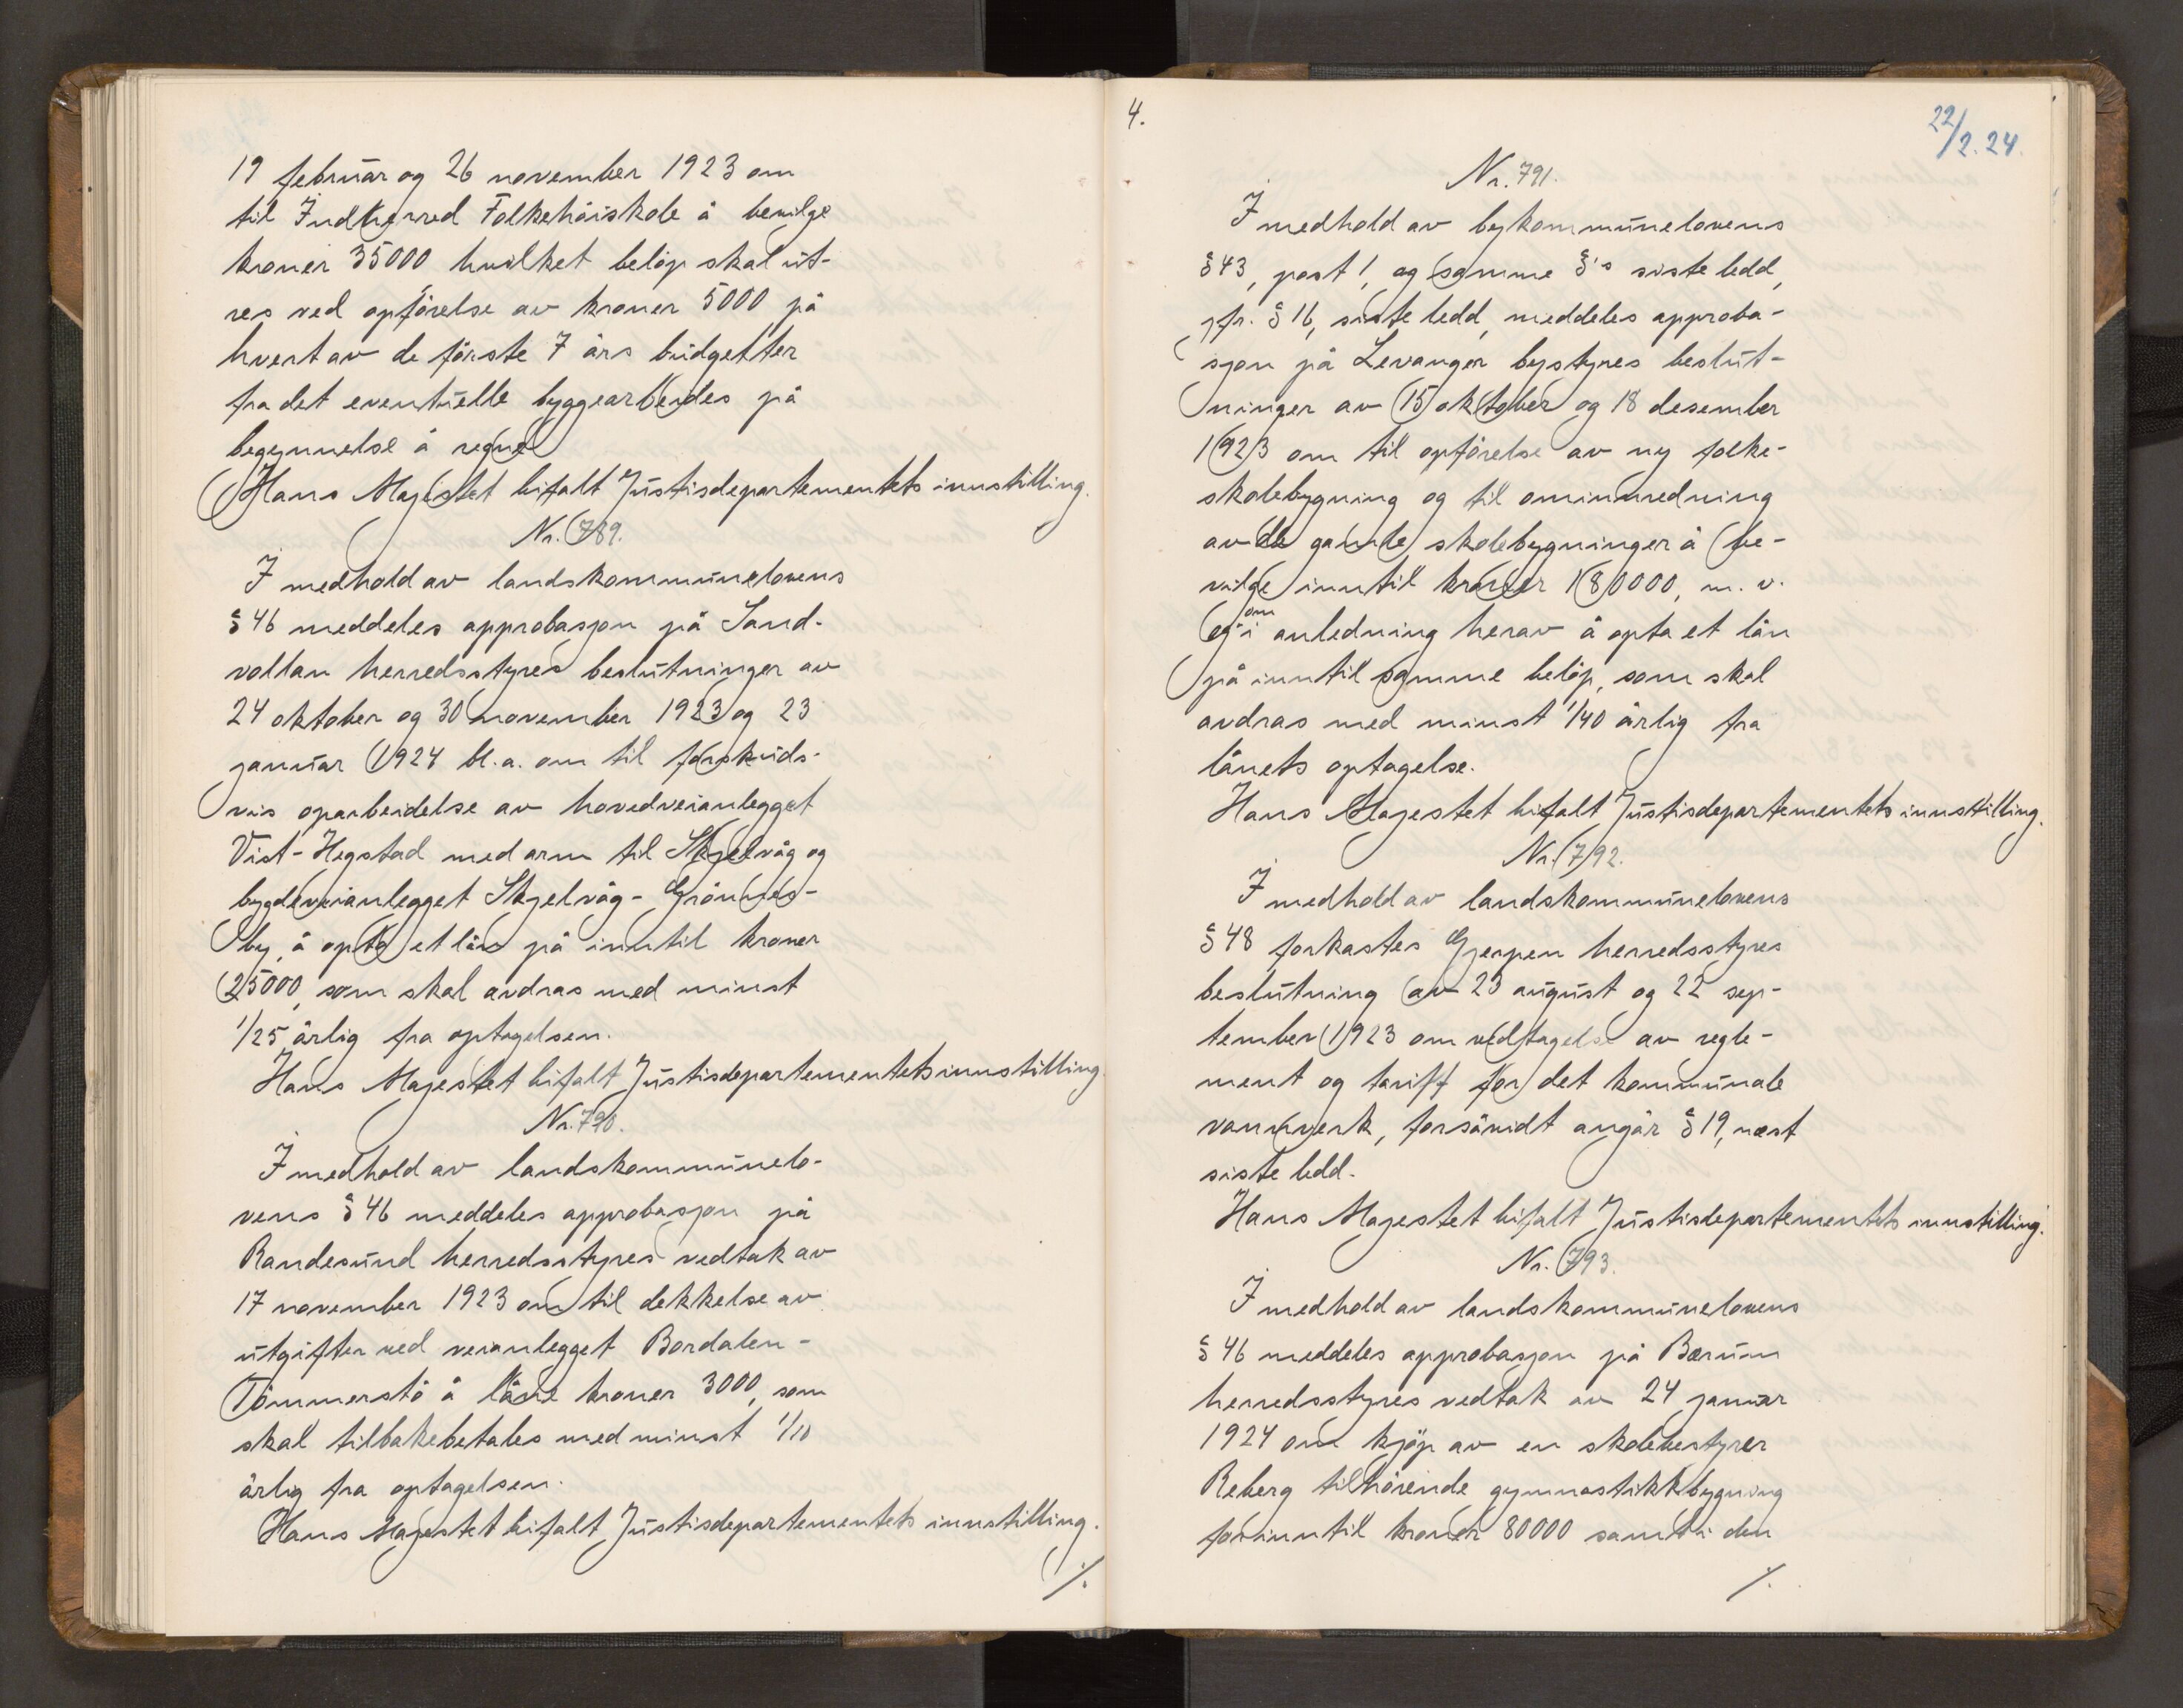 19 februar og 26 november 1923 om
til Indherred Folkehöiskole å bevilge
kroner 35000 hvilket belöp skal ut-
res ved opförelse av kroner 5000 på
hvert av de förste 7 års budgetter
fra det eventuelle byggearbeides på
begynnelse å regne
Hans Majestet bifalt Justisdepartementets innstilling.
Nr. 789.
I medhold av landskommunelovens
§ 46 meddeles approbasjon på Sand-
vollan herredsstyres beslutninger av
24 oktober og 30 november 1923 og 23
januar 1924 bl.a. om til forskuds-
vis oparbeidelse av hovedveianlegget
Vist-Hegstad med arm til Skjelvåg og
bygdeveianlegget Skjelvåg- Grönnes-
by, å opta et lån på inntil kroner
25000, som skal avdras med minst
1/25 årlig fra optagelsen.
Hans Majestet bifalt Justisdepartementets innstilling.
Nr. 790.
I medhold av landskommunelo-
vens § 46 meddeles approbasjon på
Randesund herredsstyres vedtak av
17 november 1923 om til dekkelse av
utgifter ved veianlegget Bordalen-
Tömmerstö å låne kroner 3000, som
skal tilbakebetales med minst 1/10
årlig fra optagelsen.
Hans Majestet bifalt Justisdepartementets innstilling.
./.
4.
22/2.24.
Nr. 791.
I medhold av bykommunelovens
§ 43, post 1, og samme §'s siste ledd,
jfr. § 16, siste ledd, meddeles approba-
sjon på Levanger bystyres beslut-
ninger av 15 oktober og 18 desember
1923 om til opförelse av ny folke-
skolebygning og til ominnredning
av de gamle skolebygninger å be-
vilge inntil kroner 180000, m.v.
og om i anledning herav å opta et lån
på inntil samme belöp, som skal
avdras med minst 1/40 årlig fra
lånets optagelse.
Hans Majestet bifalt Justisdepartementets innstilling.
Nr. 792.
I medhold av landskommunelovens
§ 48 forkastes Gjerpen herredsstyres
beslutning av 23 august og 22 sep-
tember 1923 om vedtagelse av regle-
ment og tariff for det kommunale
vannverk, forsåvidt angår § 19, næst
siste ledd.
Hans Majestet bifalt Justisdepartementets innstilling.
Nr. 793.
I medhold av landskommunelovens
§ 46 meddeles approbasjon på Bærum
herredsstyres vedtak av 24 januar
1924 om kjöp av en skolebestyrer
Reberg tilhörende gymnastikkbygning
for inntil kroner 80000 samt i den
./.